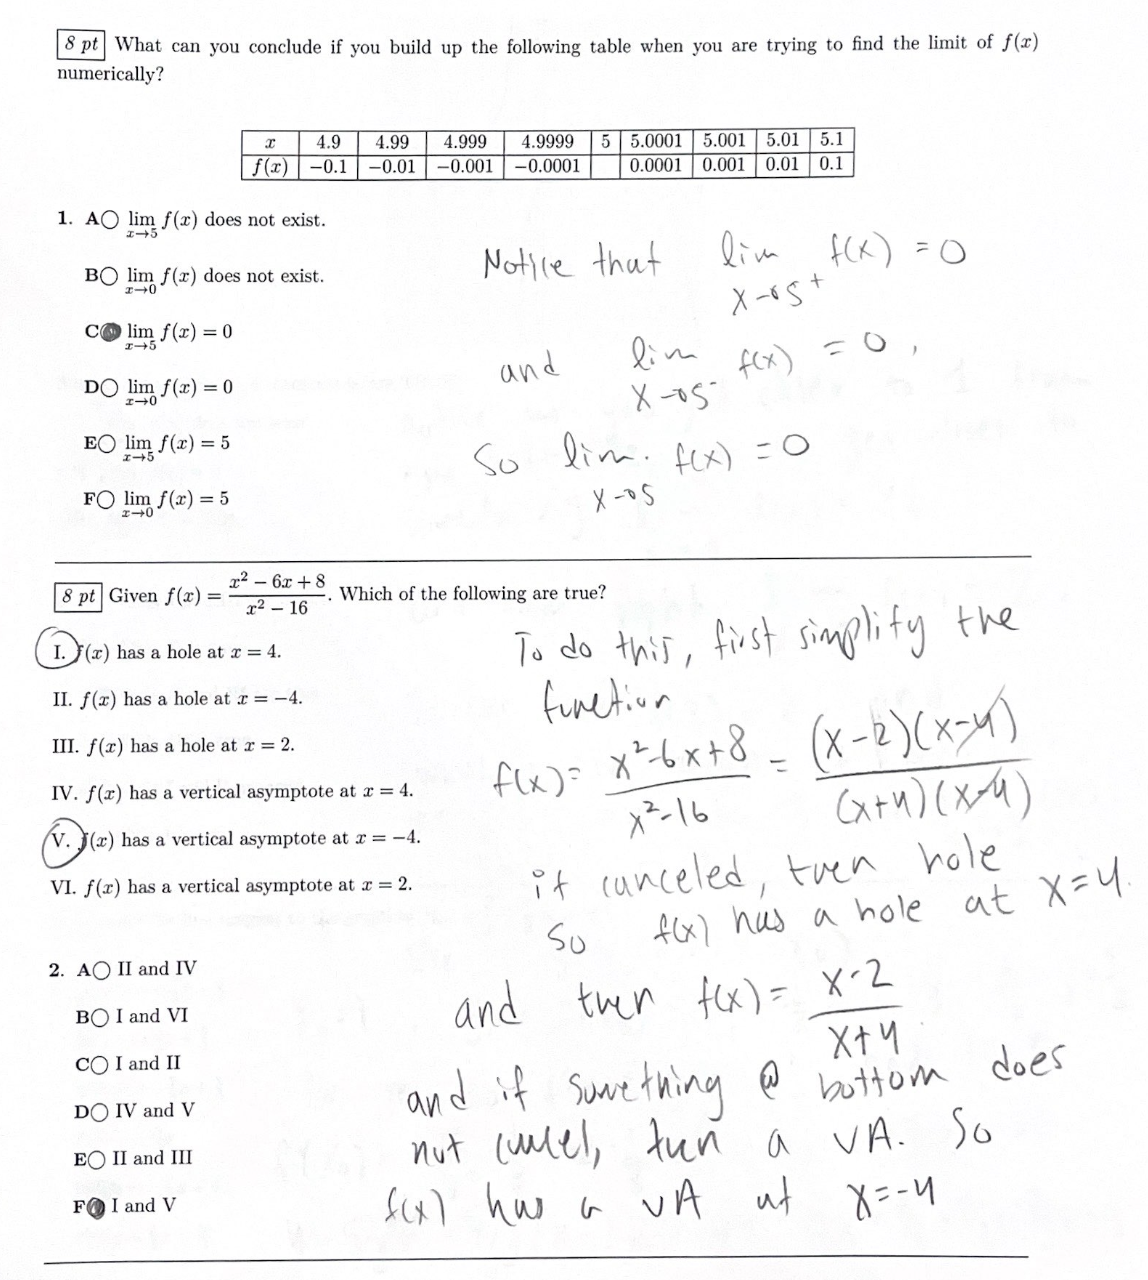 8 pt What can you conclude if you build up the following table when you are trying to find the limit of f(x)
numerically?
x 4.9 4.99 4.999 4.9999 5 5.0001 5.001 5.01 5.1
f(x) −0.1 −0.01 −0.001 −0.0001 0.0001 0.001 0.01 0.1
1. A○ lim x→5 f(x) does not exist.
B○ lim x→0 f(x) does not exist.
C● lim x→5 f(x) = 0
D○ lim x→0 f(x) = 0
E○ lim x→5 f(x) = 5
F○ lim x→0 f(x) = 5
Notice that lim x→5⁺ f(x) = 0
and lim x→5⁻ f(x) = 0,
So lim. x→5 f(x) = 0
8 pt Given f(x) = (x² − 6x + 8)/(x² − 16). Which of the following are true?
I. f(x) has a hole at x = 4.
II. f(x) has a hole at x = −4.
III. f(x) has a hole at x = 2.
IV. f(x) has a vertical asymptote at x = 4.
V. f(x) has a vertical asymptote at x = −4.
VI. f(x) has a vertical asymptote at x = 2.
To do this, first simplify the
function
f(x) = (x²-6x+8)/(x²-16) = (x-2)(x-4)/(x+4)(x-4)
if canceled, then hole
So f(x) has a hole at x=4.
and then f(x) = (x-2)/(x+4)
and if something @ bottom does
not cancel, then a VA. So
f(x) has a VA at x=-4
2. A○ II and IV
B○ I and VI
C○ I and II
D○ IV and V
E○ II and III
F● I and V